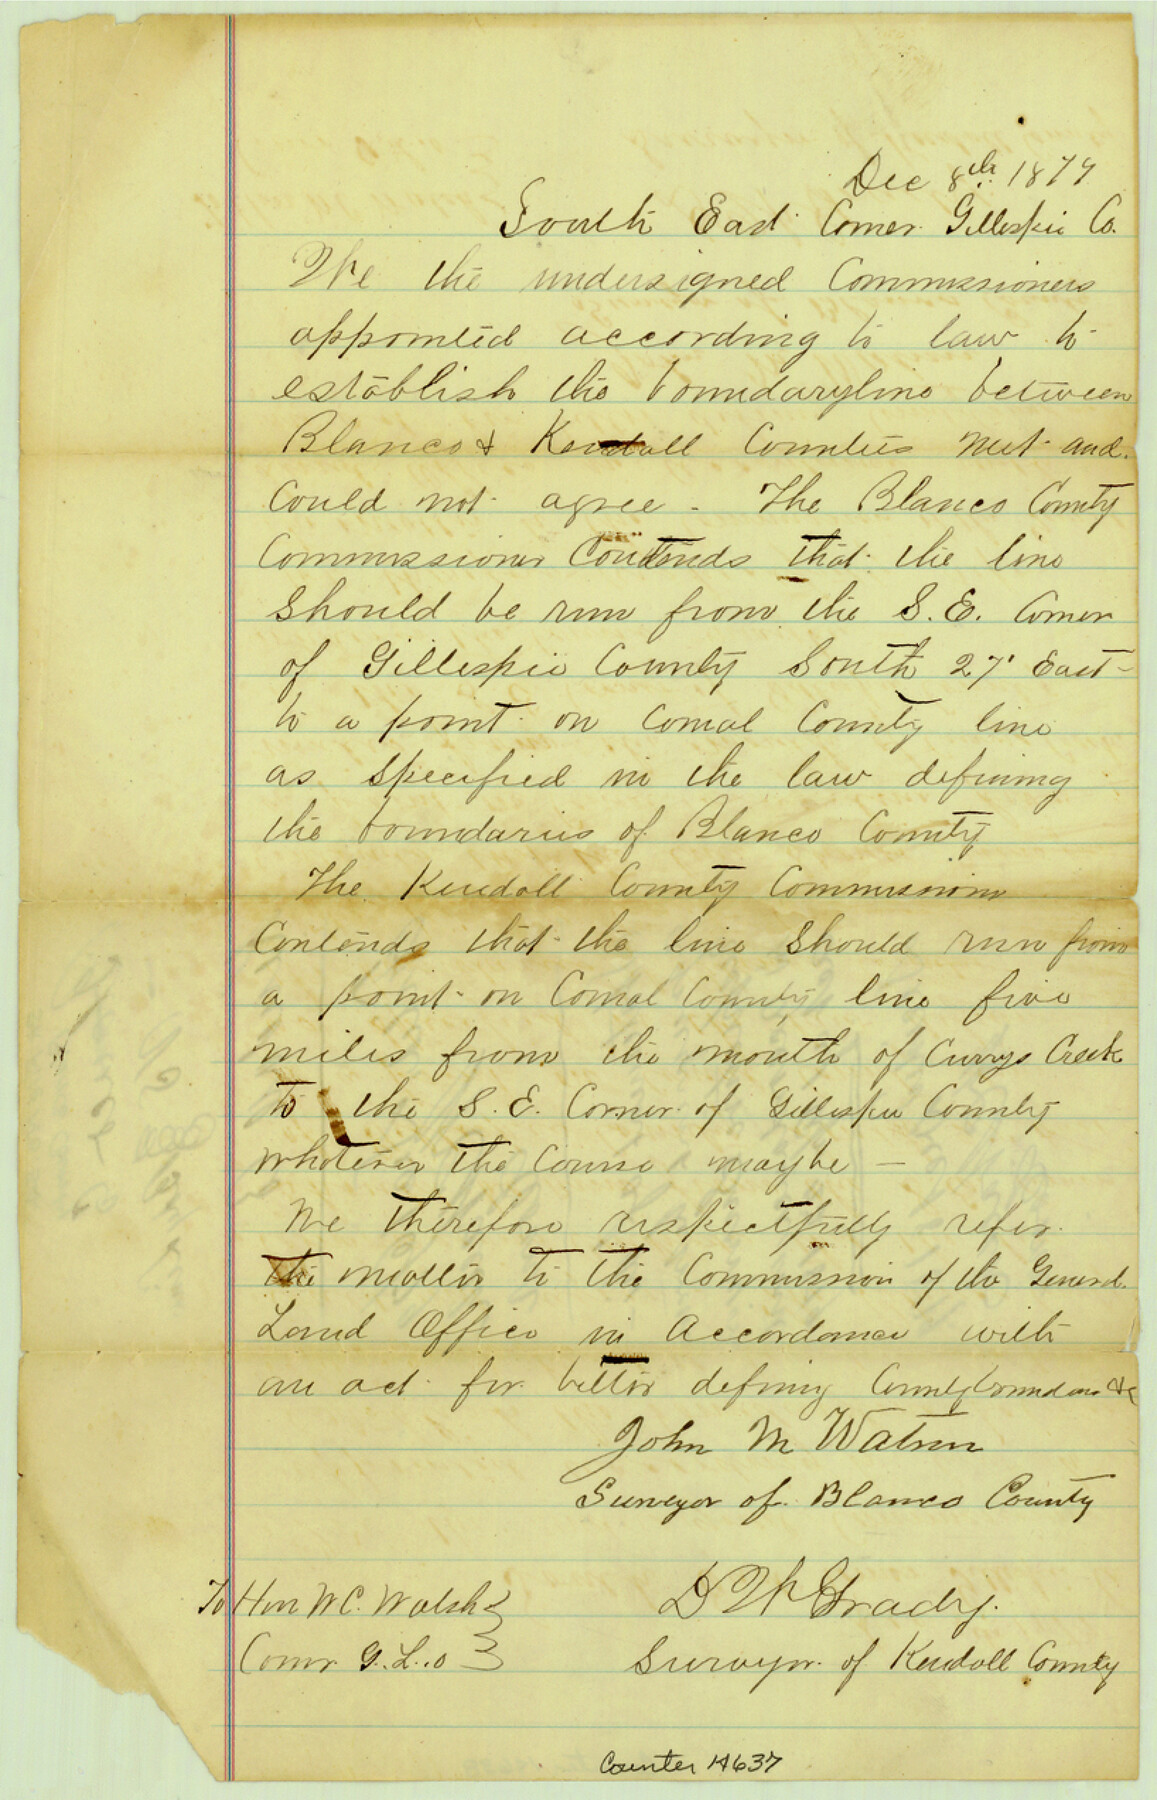 Dec 8th 1879
South East Corner Gillespie Co.
We the undersigned Commissioners
appointed according to law to
establish the boundaryline between
Blanco & Kendall Counties met and
Could not agree - The Blanco County
Commissioner Contends that the line
should be run from the S.E. Corner
of Gillespie County South 27° East
to a point on Comal County line
as specified in the law defining
the boundaries of Blanco County
The Kendall County Commissioner
Contends that the line should run from
a point on Comal County line five
miles from the mouth of Currys Creek
to the S.E. Corner of Gillespie County
whatever the Course maybe —
We therefore respectfully refer
the matter to the Commission of the General
Land Office in Accordance with
an act for better defining County &c
John M Watson
Surveyor of Blanco County
To Hon W.C. Walsh
Comr G.L.O
Grady.
Surveyor of Kendall County
Counter 14637